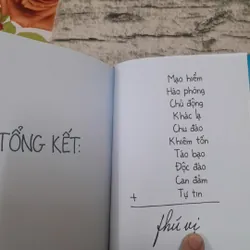 TỔNG KẾT:
Mạo hiểm
Hào phóng
Chủ động
Khác lạ
Chu đáo
Khiêm tốn
Táo bạo
Độc đáo
Can đảm
+ Tự tin
thú vị